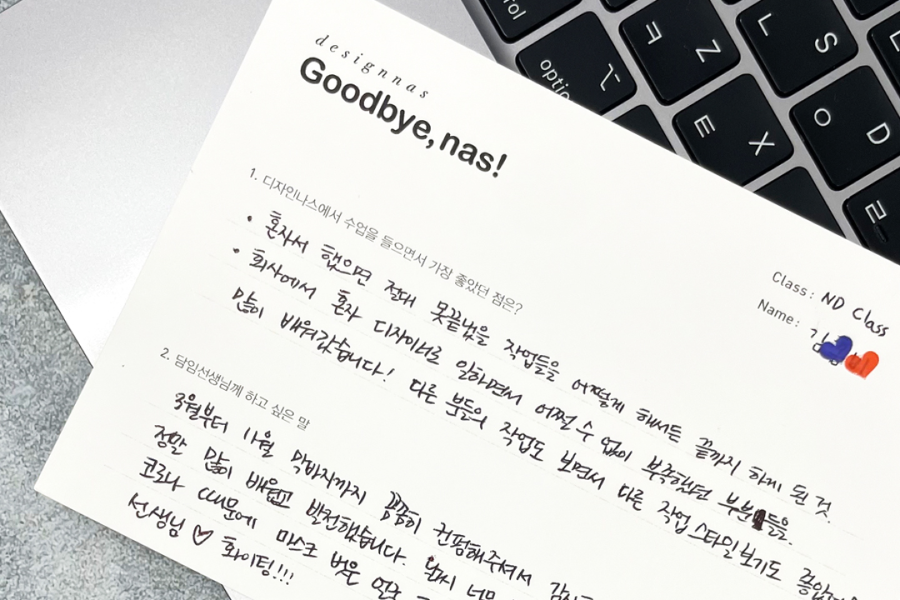 designnas
Goodbye, nas!
Class: ND Class
Name: 김
1. 디자인나스에서 수업을 들으면서 가장 좋았던 점은?
• 혼자서 했으면 절대 못끝냈을 작업들을 어떻게 해서든 끝까지 하게 된 것.
• 회사에서 혼자 디자이너로 일하면서 어쩔 수 없이 부족했던 부분들을
많이 배워갔습니다! 다른 분들의 작업도 보면서 다른 작업 스타일 보기도 좋았
2. 담임선생님께 하고 싶은 말
3월부터 11월 막바지까지 꼼꼼히 컨펌해주셔서 감사
정말 많이 배웠고 발전했습니다. 날씨 너무
코로나 때문에 마스크 벗은 얼굴
선생님 ♡ 화이팅!!!
rol
option
⌥
ㅋ Z
ㄴ S
ㅌ X
ㅇ D
ㄹ